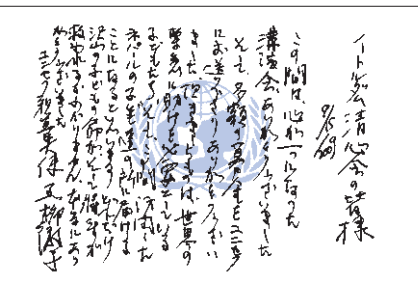 清心会の皆様
この間は、心が一つになった
講演会ありがとうございました
そして、多額の募金をユニセフ
にお送り下さりありがとうござい
ました。世界の
緊急に助けを必要としている
子どもたち、
ネパールの子ども達に届ける
ことになると思います どれだけ
沢山の子どもの命が、そして
救われるかわかりません 本当にあり
がとうございました
ユニセフ親善大使 黒柳徹子